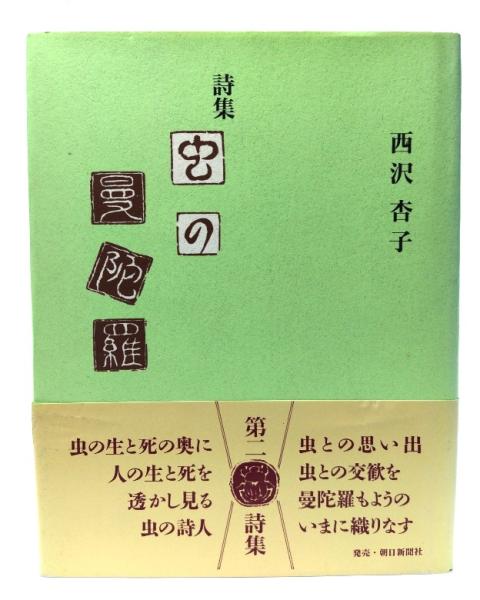 西沢杏子
詩集
虫の
曼陀羅
虫との思い出
虫との交歓を
曼陀羅もようの
いまに織りなす
発売・朝日新聞社
第二詩集
虫の生と死の奥に
人の生と死を
透かし見る
虫の詩人